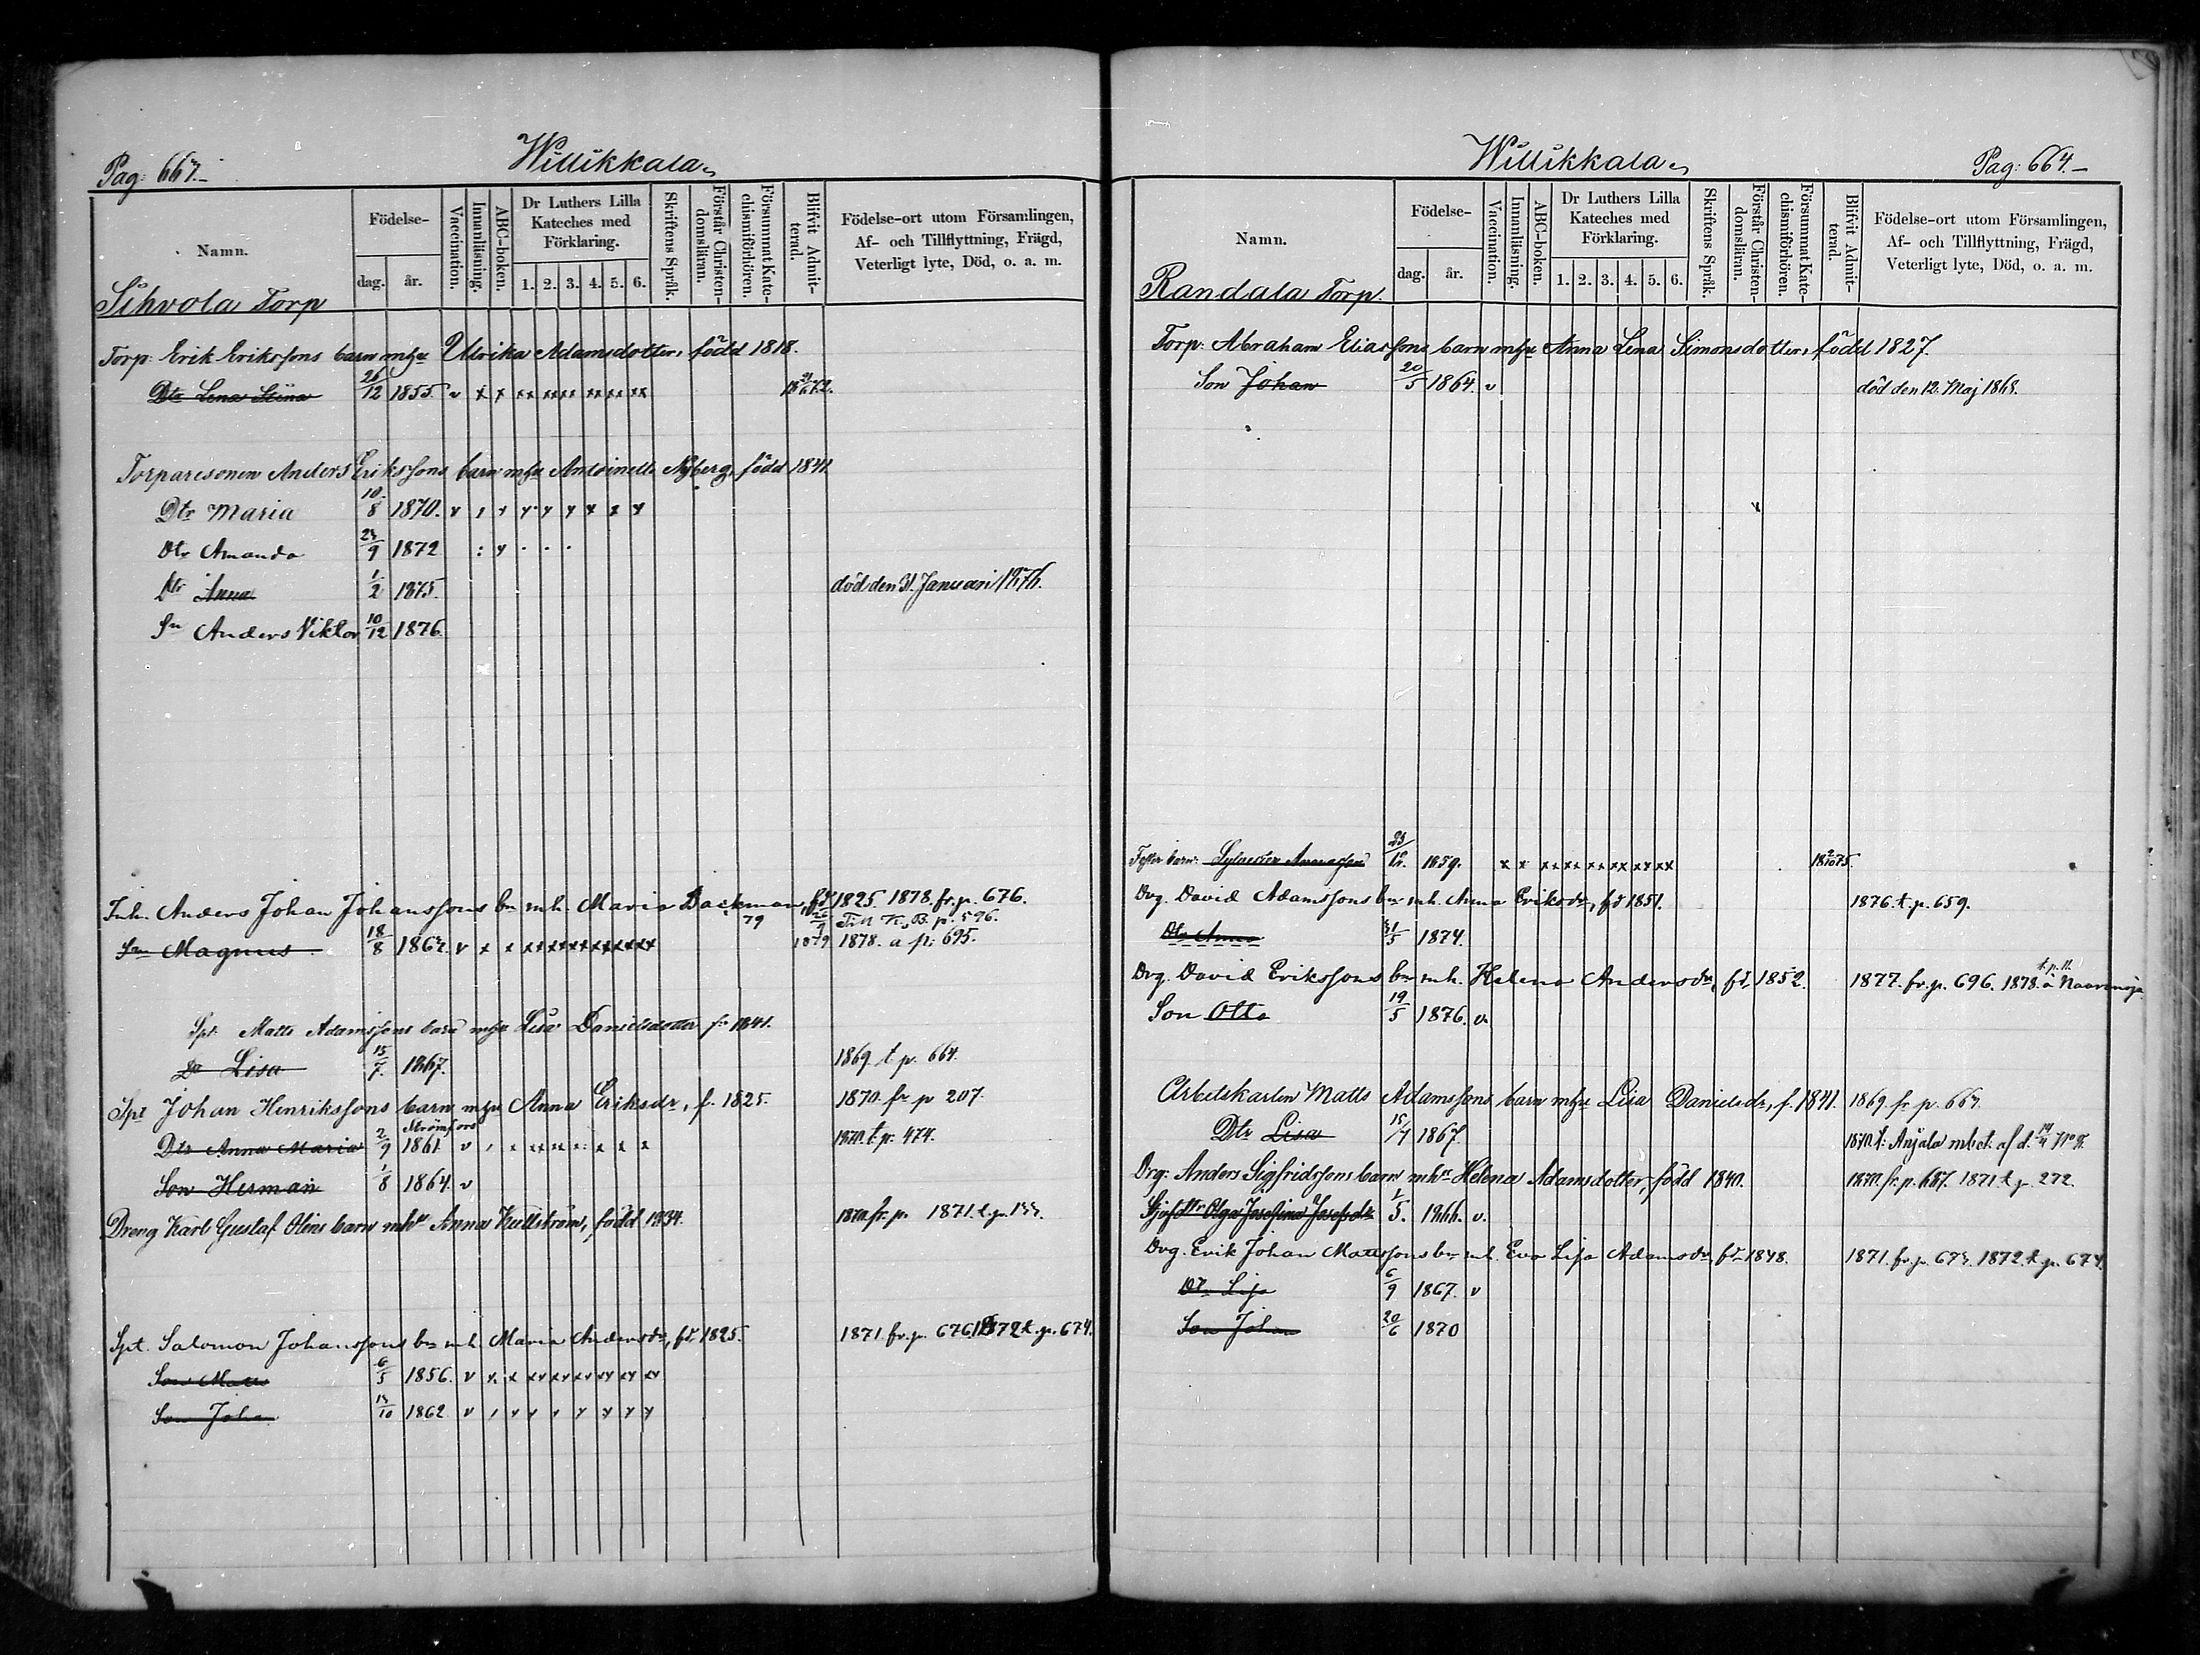 Pag: 667.
Willikkala
Namn.
Födelse-
dag.
år.
Vaccination.
Innanläsning.
ABC-boken.
Dr Luthers Lilla Kateches med Förklaring.
1. 2. 3. 4. 5. 6.
Skriftens Språk.
Förstår Christen-domsläran.
Försummat Kate-chismiförhören.
Blifvit Admit-terad.
Födelse-ort utom Församlingen,
Af- och Tillflyttning, Frägd,
Veterligt lyte, Död, o. a. m.
Sihvola Torp
Torp: Erik Erikssons barn mhu Ulrika Adamsdotter, född 1818.
Dtr Lena Stina 26/12 1855. v x x xx xxx xx xx xx
Torparesonen Anders Erikssons barn mhu Antoinette Nyberg, född 1841
Dtr Maria 10/8 1870. v
Dtr Amanda 24/9 1872
Dtr Anna 1/2 1875. död den 31. Januari 1876.
Sn Anders Viktor 10/12 1876.
Inh. Anders Johan Johanssons bn mh. Maria Backman, fd 1825. 1878. fr. p. 676.
79 Till K. B. p. 596.
Sn Magnus 18/8 1862 v x x 1879 1878. a p: 695.
Spt Matts Adamssons barn mhu Lisa Danielsdotter f. 1841.
Dr Lisa 15/7 1867. 1869 t. p. 664.
Spt Johan Henrikssons barn mhu Anna Eriksdr, f. 1825. 1870. fr p 207.
Strömfors
Dtr Anna Maria 2/9 1861 v 1870. t. p. 474.
Son Herman 1/8 1864. v
Dreng Karl Gustaf Olins barn mhr Anna Kullström, född 1834. 1870. fr. p. 1871. t. p.
Spt. Salomon Johanssons bn mh. Maria Andersdr, fd. 1825. 1871. fr. p. 676 1872 t. p. 674.
Son Matts 6/5 1856. v
Son Johan 14/10 1862 v
Willikkala
Pag: 664.
Namn.
Födelse-
dag.
år.
Vaccination.
Innanläsning.
ABC-boken.
Dr Luthers Lilla Kateches med Förklaring.
1. 2. 3. 4. 5. 6.
Skriftens Språk.
Förstår Christen-domsläran.
Försummat Kate-chismiförhören.
Blifvit Admit-terad.
Födelse-ort utom Församlingen,
Af- och Tillflyttning, Frägd,
Veterligt lyte, Död, o. a. m.
Randala Torp.
Torp: Abraham Eliassons barn mhu Anna Lena Simonsdotter, född 1827.
Son Johan 20/5 1864. v död den 12. Maj 1868.
barn: 1859. x x xx xx xx xx xx xx
Drg. David Adamssons bn mh. Anna Eriksdr, fd 1851. 1876. t. p. 659.
Dtr Anna 31/5 1874.
Drg. David Erikssons bn mh. Helena Andersdr, fd. 1852. 1877. fr. p. 696. 1878.
Son Otto 19/5 1876. v.
Arbetskarlen Matts Adamssons barn mhu Lisa Danielsdr, f. 1841. 1869 fr p. 667.
Dtr Lisa 15/7 1867. 1870. t: Anjala
Drg: Anders Sigfridssons barn mhr Helena Adamsdotter, född 1840. 1870. fr. p. 687. 1871 t p. 272.
Olga Josefina Josefsdr 1/5. 1866. v.
Drg. Erik Johan Mattssons bn mh. Eva Lisa Adamsdr, fd 1848. 1871. fr. p. 1872. t. p. 674.
Dr Lisa 6/9 1867. v
Son Johan 20/6 1870